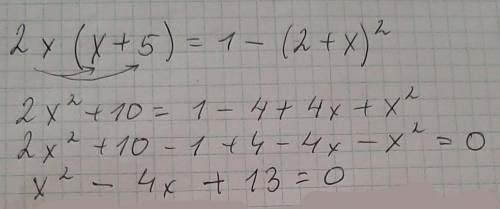 2x(x+5)=1-(2+x)²
2x²+10=1-4+4x+x²
2x²+10-1+4-4x-x²=0
x²-4x+13=0